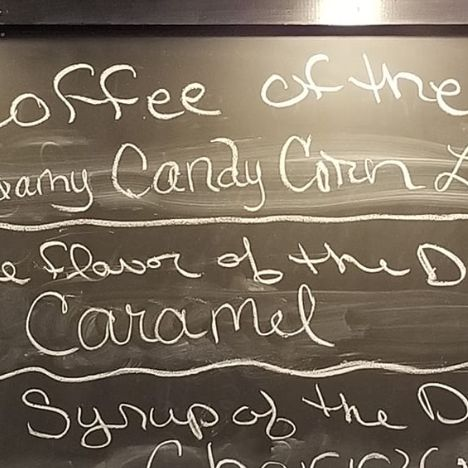 offee of the
eamy Candy Corn L
e flavor of the D
Caramel
Syrup of the D